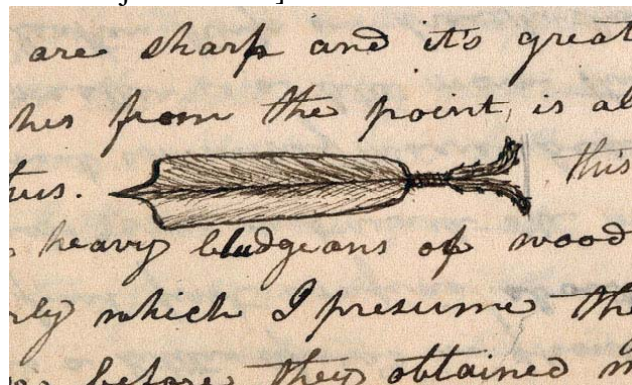 are sharp and it's great
hes from the point, is al
tus. this
heavy bludgeons of wood
rly which I presume the
before they obtained